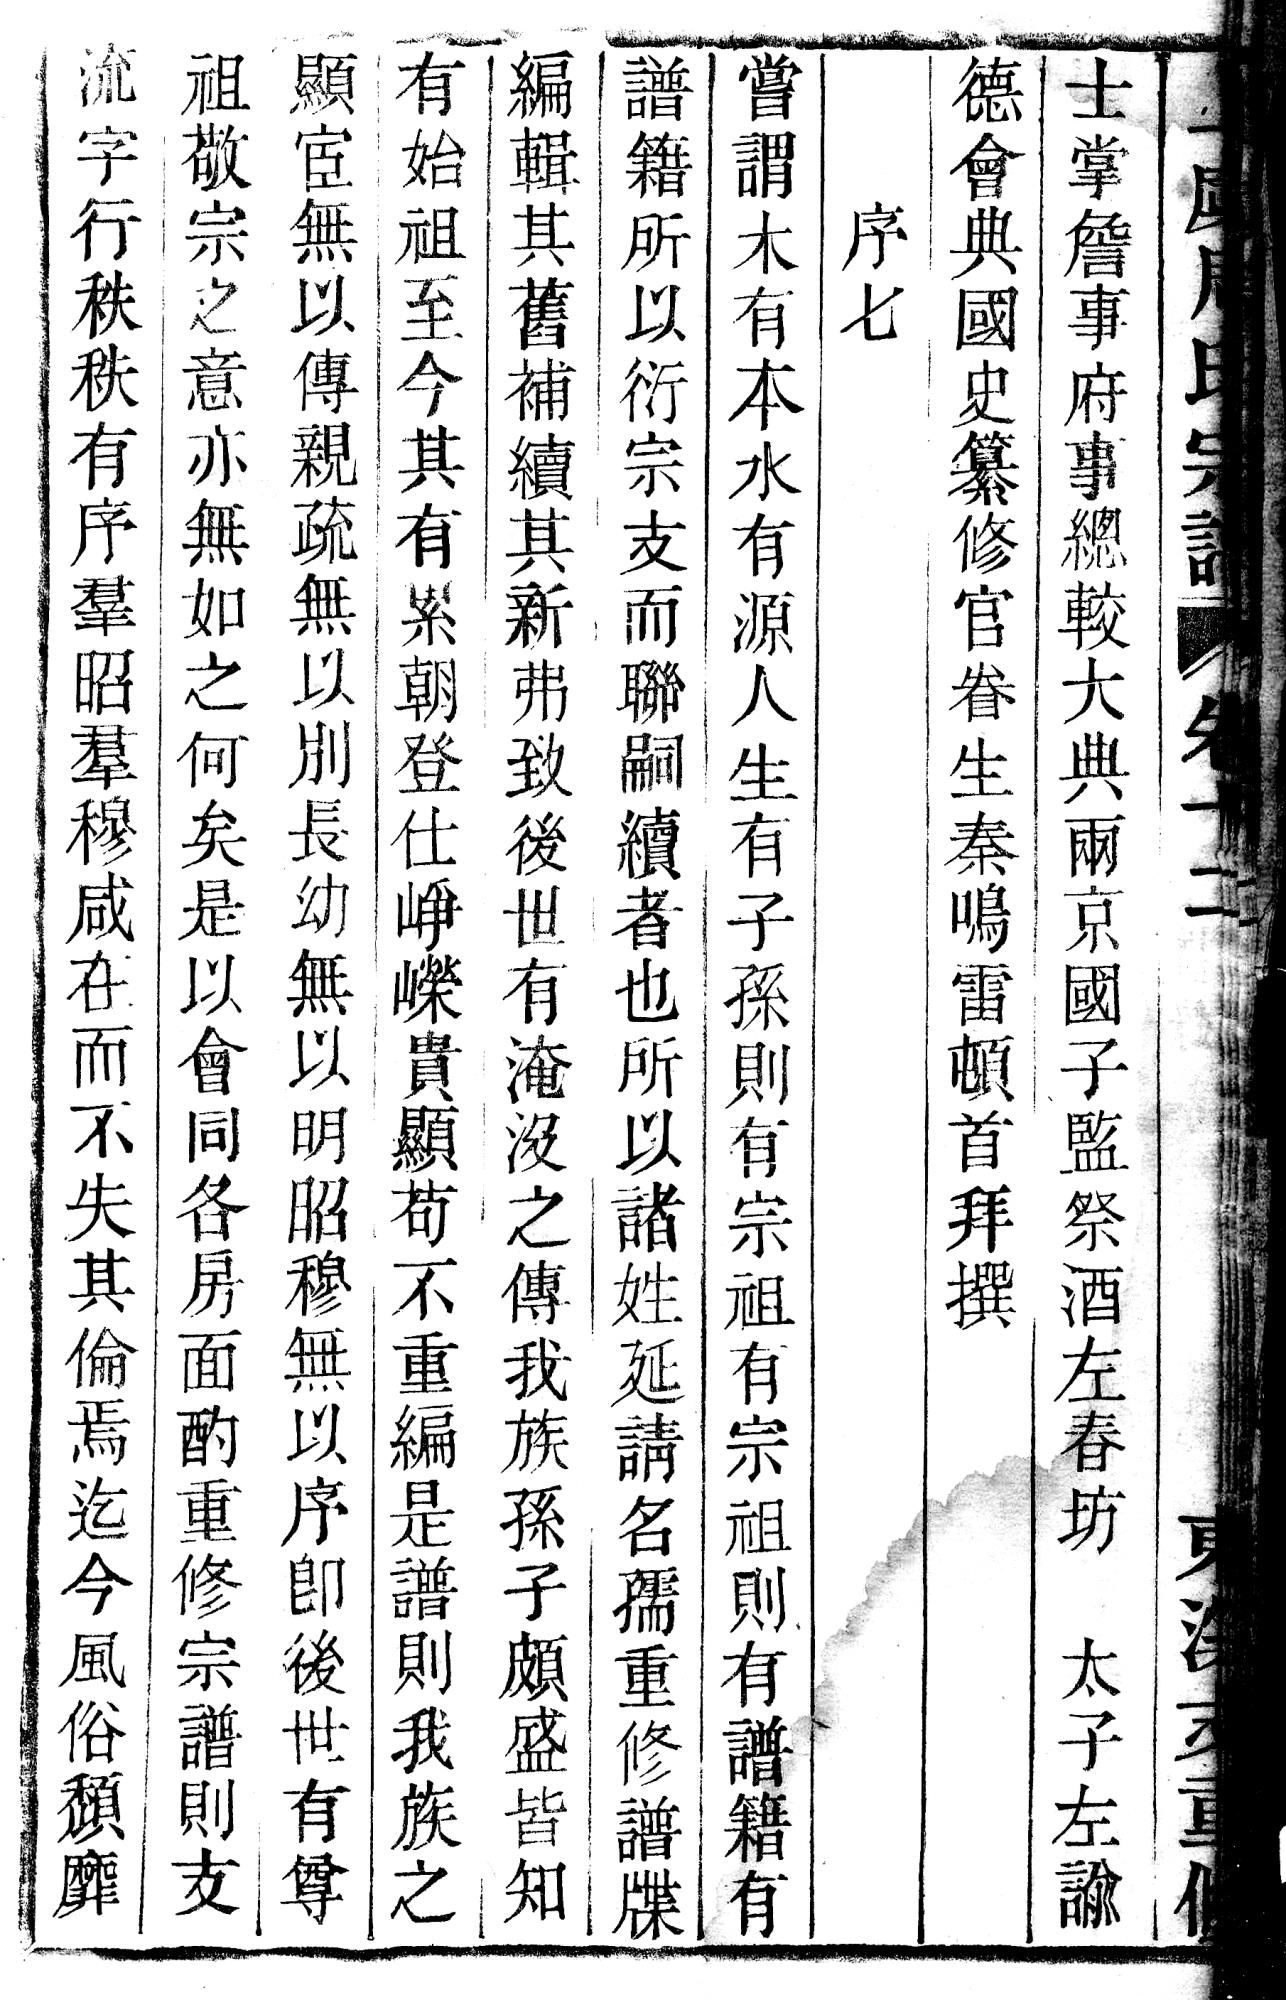 周氏宗譜 卷十二
士掌詹事府事總較大典兩京國子監祭酒左春坊 太子左諭
德會典國史纂修官眷生秦鳴雷頓首拜撰
序七
嘗謂木有本水有源人生有子孫則有宗祖有宗祖則有譜籍有
譜籍所以衍宗支而聯嗣續者也所以諸姓延請名孺重修譜牒
編輯其舊補續其新弗致後世有淹沒之傳我族孫子頗盛皆知
有始祖至今其有累朝登仕崢嶸貴顯苟不重編是譜則我族之
顯宦無以傳親疏無以別長幼無以明昭穆無以序卽後世有尊
祖敬宗之意亦無如之何矣是以會同各房面酌重修宗譜則支
流字行秩秩有序羣昭羣穆咸在而不失其倫焉迄今風俗頹靡